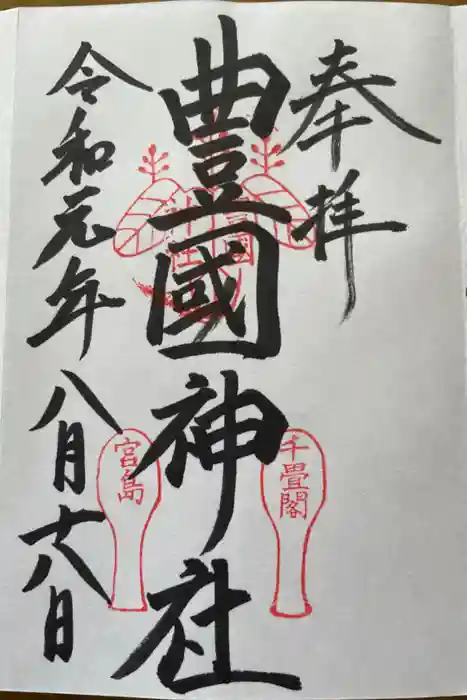 奉拝
豊國神社
令和元年八月十八日
千畳閣
宮島